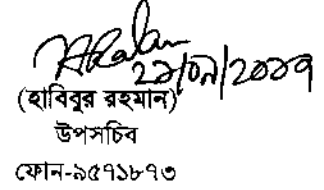 ২১/০৯/২০১৭
(হাবিবুর রহমান)
উপসচিব
ফোন-৯৫৭১৮৭৩